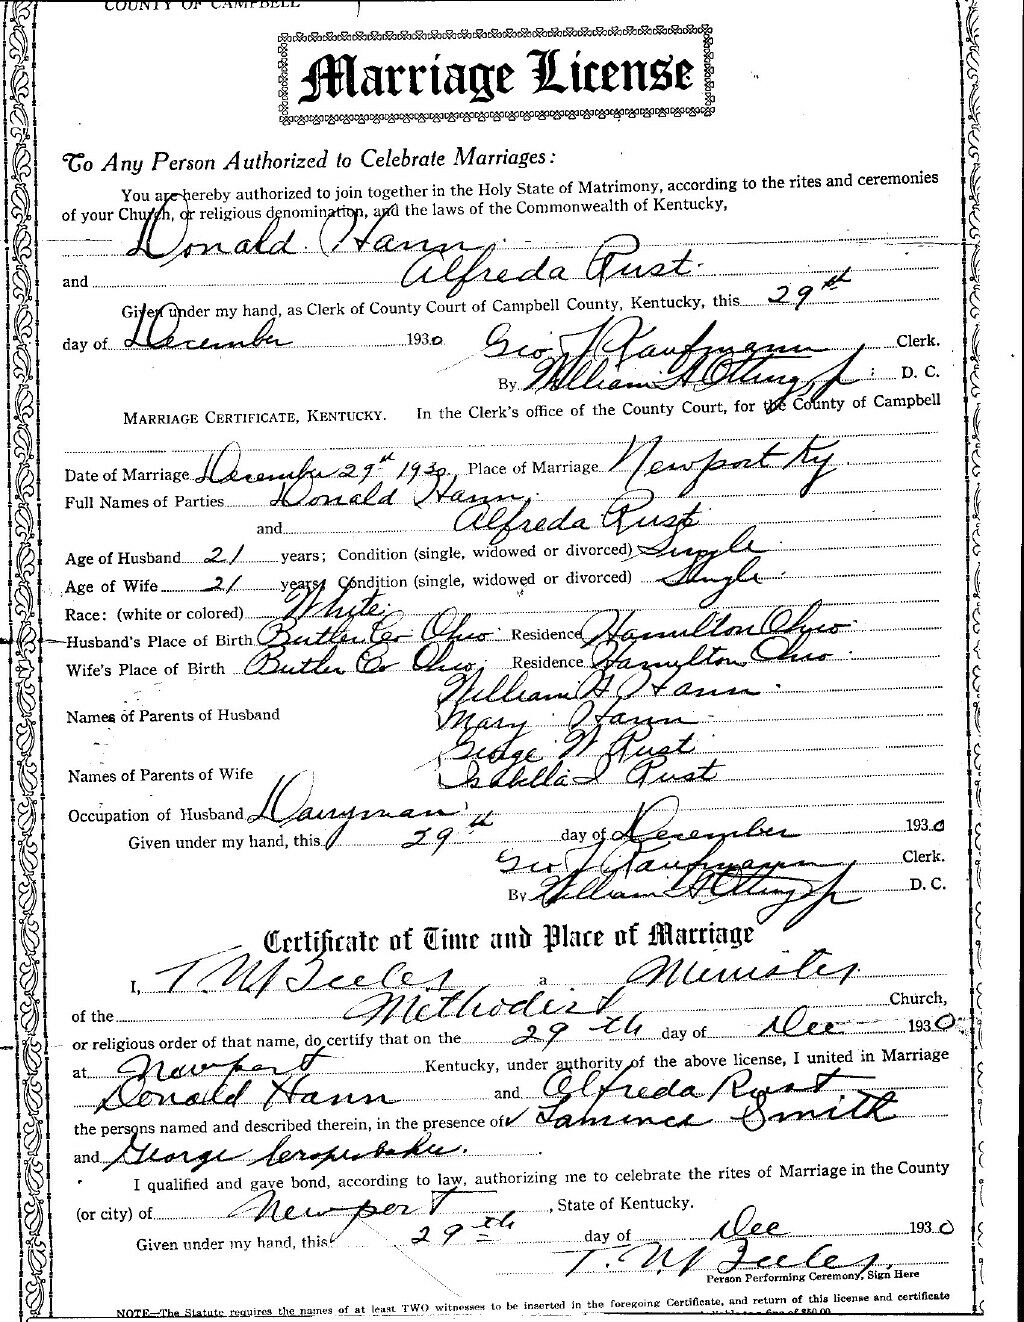 COUNTY OF CAMPBELL
Marriage License
To Any Person Authorized to Celebrate Marriages:
You are hereby authorized to join together in the Holy State of Matrimony, according to the rites and ceremonies
of your Church, or religious denomination, and the laws of the Commonwealth of Kentucky,
Donald Hann
and Alfreda Rust
Given under my hand, as Clerk of County Court of Campbell County, Kentucky, this 29th
day of December 1930 Geo J Kaufmann Clerk.
By William H Otting, Jr : D. C.
MARRIAGE CERTIFICATE, KENTUCKY. In the Clerk's office of the County Court, for the County of Campbell
Date of Marriage December 29th 1930 Place of Marriage Newport Ky.
Full Names of Parties Donald Hann
and Alfreda Rust
Age of Husband 21 years; Condition (single, widowed or divorced) Single
Age of Wife 21 years; Condition (single, widowed or divorced) Single
Race: (white or colored) White
Husband's Place of Birth Butler Co Ohio Residence Hamilton Ohio
Wife's Place of Birth Butler Co Ohio Residence Hamilton Ohio
William H. Hann
Names of Parents of Husband
Mary Hann
George W Rust
Names of Parents of Wife
Isabella J Rust
Occupation of Husband Dairyman
Given under my hand, this 29th day of December 1930
Geo J Kaufmann Clerk.
By William H Otting Jr D. C.
Certificate of Time and Place of Marriage
I, T. M. a Minister
of the Methodist Church,
or religious order of that name, do certify that on the 29th day of Dec 1930
at Newport Kentucky, under authority of the above license, I united in Marriage
Donald Hann and Alfreda Rust
the persons named and described therein, in the presence of Smith
and George
I qualified and gave bond, according to law, authorizing me to celebrate the rites of Marriage in the County
(or city) of Newport, State of Kentucky.
Given under my hand, this 29th day of Dec 1930
T. M.
Person Performing Ceremony, Sign Here
NOTE—The Statute requires the names of at least TWO witnesses to be inserted in the foregoing Certificate, and return of this license and certificate